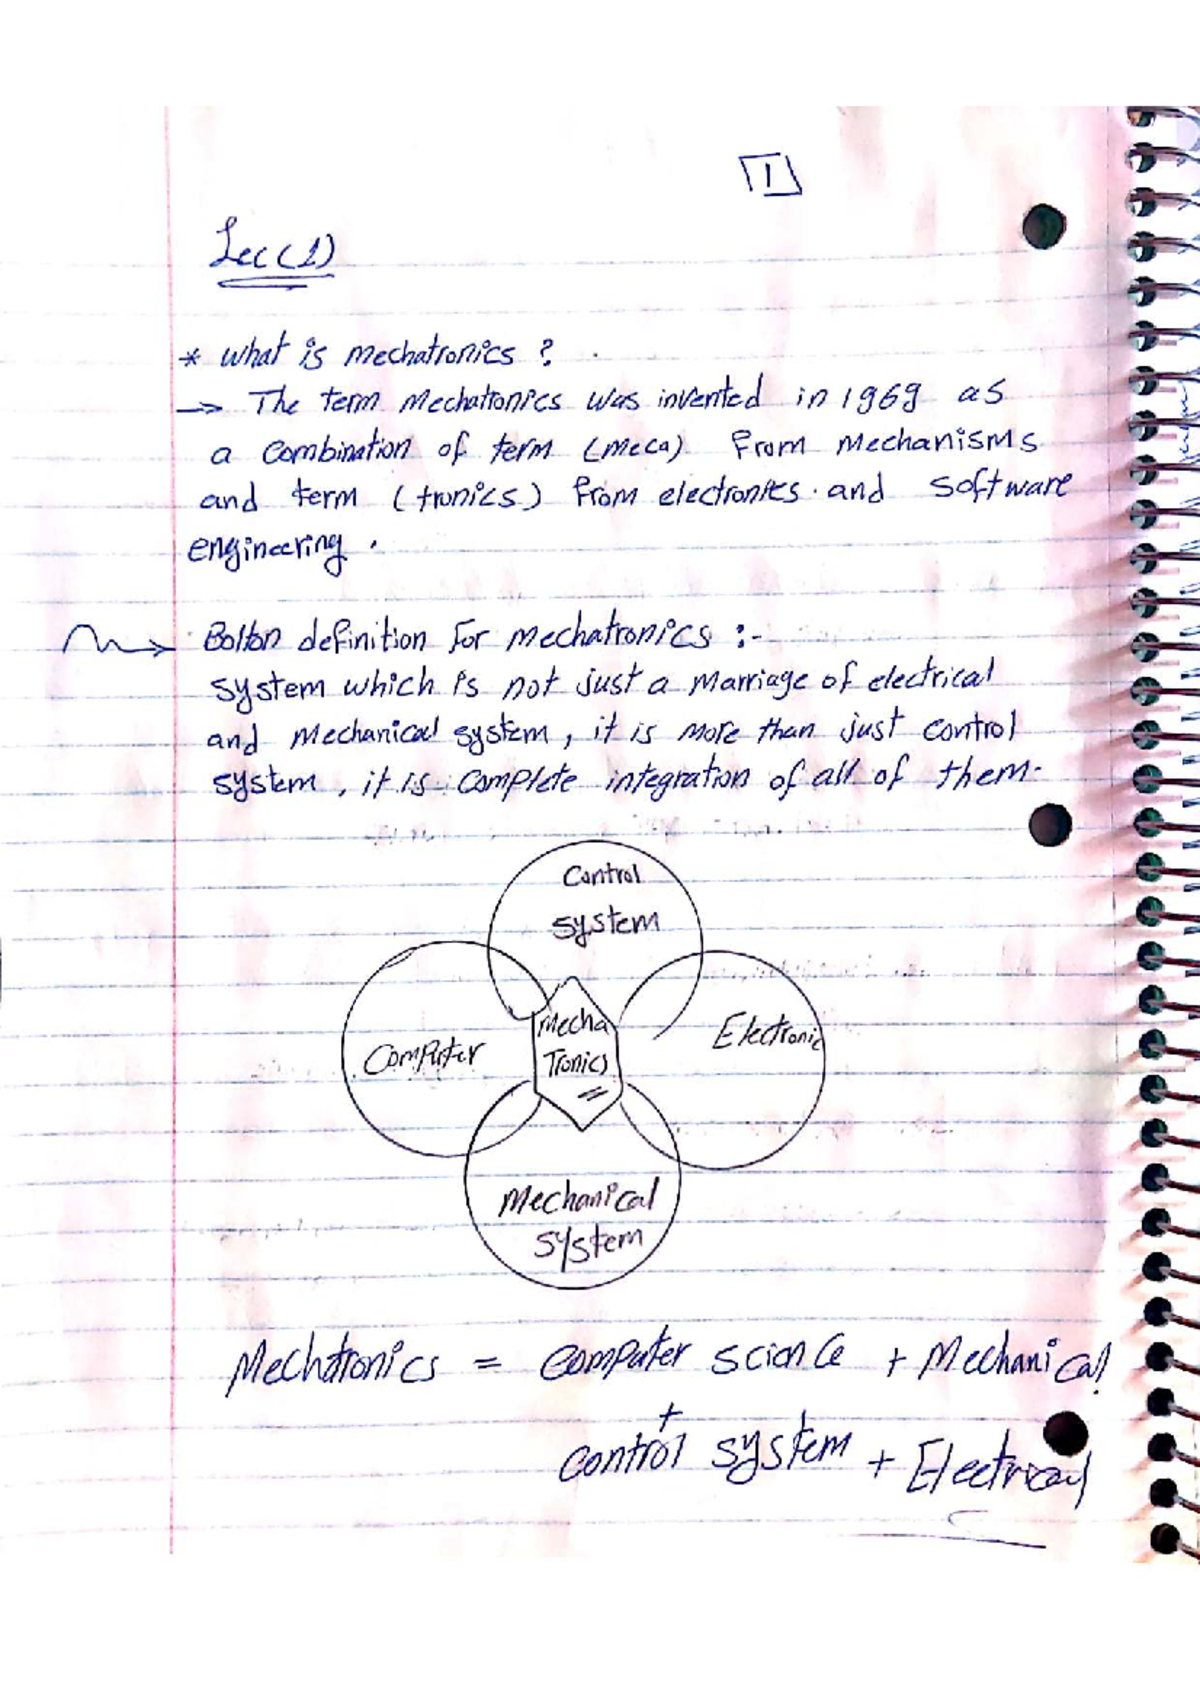 1
Lec(1)
* What is mechatronics ?
→ The term Mechatronics was invented in 1969 as
a Combination of term (meca) From Mechanisms
and term (tronics) From electronics and Software
engineering .
Bolton definition For Mechatronics :-
System which is not just a Marriage of electrical
and Mechanical system, it is More than just control
system, it is complete integration of all of them.
Control
system
Mecha
Tronics
Computer
Electronic
Mechanical
system
Mechatronics = Computer science + Mechanical
+
control system + Electrical